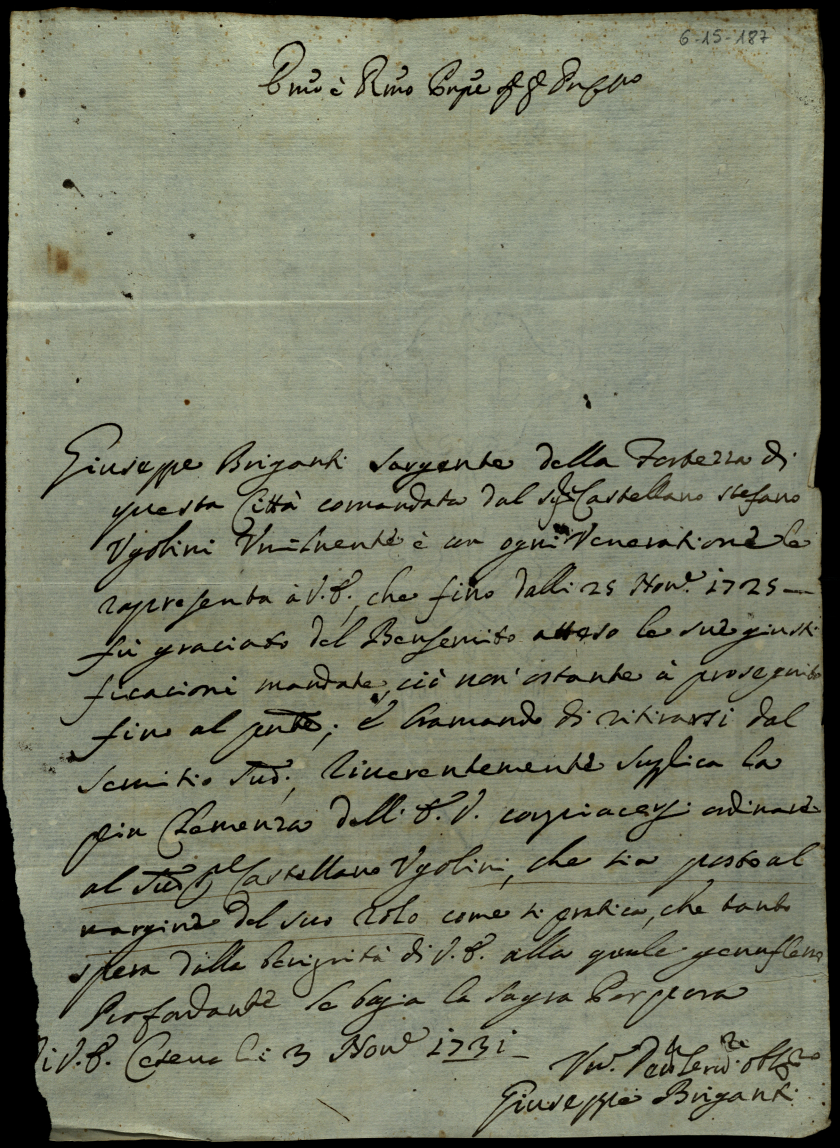 6-15-187
Emo è Rmo Pnpe
Giuseppe Briganti Sargente della Fortezza di
questa Città comandata dal Sigr Castellano Stefano
Ugolini Umilmente è con ogni Venerazione le
rapresenta à V. E., che fino dalli 25 Nove. 1725 —
fù graciato del Bensemito atteso le sue giusti
ficacioni mandate, ciò non' ostante à proseguito
fino al pnte; è bramando di ritirarsi dal
semitio sud., riverentemente suplica la
pia Clemenza dell' E. V. compiacersi ordinare
al sudo Castellano Ugolini, che sia posto al
margine del suo rolo come si pratica, che tanto
spera dalla benignità di V. E. alla quale genuflesso
Profondante le bagia la sagra Porpora
Di V. E. Cesena li 3 Nove 1731 —
Giuseppe Briganti